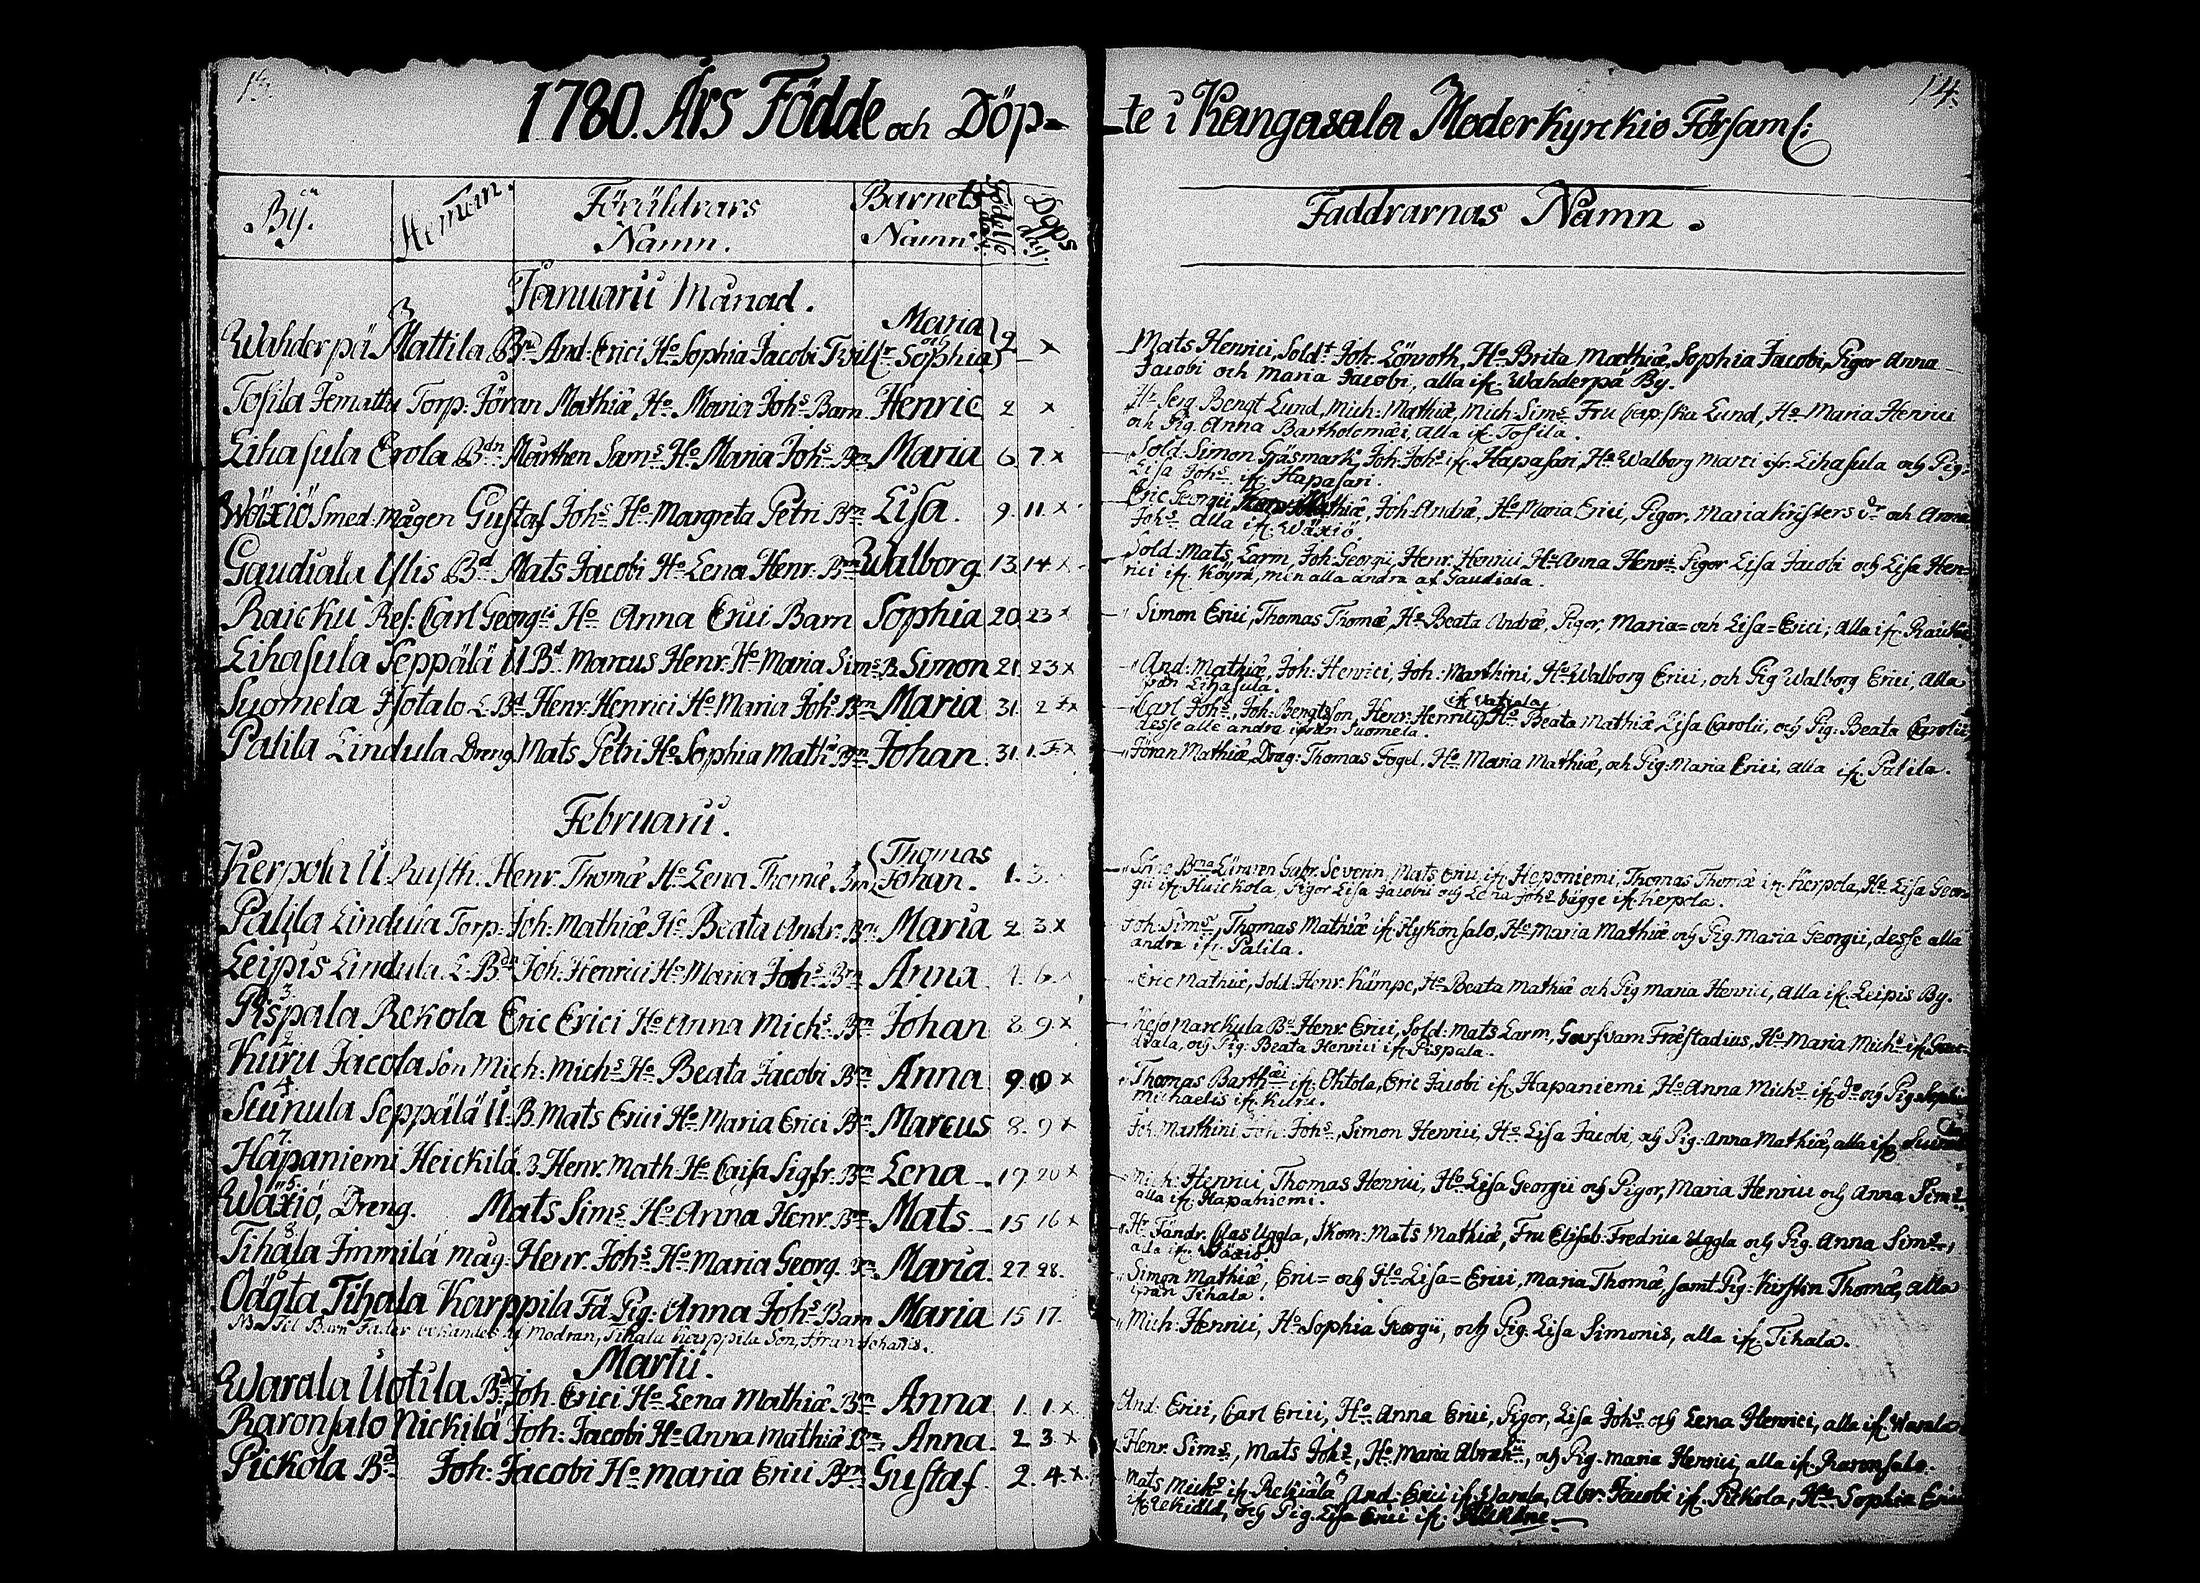 1780. Års Födde och Döp-
By.
Hemman.
Föräldrars
Namn.
Barnets
Namn.
Födelse
dag.
Döps
dag.
Januarii Månad.
Maria
och
Wahderpä Mattila Bn And: Erici Ho Sophia Jacobi Tvill:r Sophia 2 x
Tosila Torp: Jöran Mathiæ Ho Maria Johs Barn Henric 2 x
Lihasula Erola Bdn Mårthen Sams Ho Maria Johs Brn Maria 6. 7. x
Wäxiö Smed: mågen Gustaf Johs Ho Margreta Petri Brn Lisa. 9. 11 x
Gaudiala Ylis Bd Mats Jacobi Ho Lena Henr. Brn Walborg 13 14 x
Raicku Ref: Carl Georgii Ho Anna Erici Barn Sophia 20 23 x
Lihasula Seppälä U Bd Marcus Henr. Ho Maria Sims B. Simon 21 23 x
Suomela L. Bd Henr. Henrici Ho Maria Johs Brn Maria 31. 2 F x
Palila Lindula Dreng Mats Petri Ho Sophia Math: Brn Johan. 31. 1. F x
Februarii.
Thomas
Kerpola U Rusth. Henr. Thomæ Ho Lena Thomæ Brn Johan. 1. 3.
Palila Lindula Torp. Joh: Mathiæ Ho Beata Andr. Brn Maria 2. 3 x
Leipis Lindula L. Bdn Joh: Henrici Ho Maria Johs Brn Anna 6. x
3.
Pispala Rekola Eric Erici Ho Anna Michs Brn Johan 8. 9 x
2.
Kuru Jacola Son Mich: Michs Ho Beata Jacobi Brn Anna 9 10 x
4.
Suinula Seppälä U. B. Mats Erici Ho Maria Erici Brn Marcus 8. 9 x
7.
Hapaniemi Heickilä 3. Henr. Math. Ho Caisa Sigfr. Brn Lena 19. 20 x
5.
Wäxiö, Dreng. Mats Sims Ho Anna Henr. Brn Mats 15 16 x
8.
Tihala Immilä mag: Henr. Johs Ho Maria Georg. Brn Maria. 27. 28.
6
Oägta Tihala Karppila Fd Pig: Anna Johs Barn Maria 15 17.
NB. Til Barn Fader bekandes af Modran, Tihala Karppila Son, Jöran Johanis.
Martii.
Warala Uotila Bd Joh. Erici Ho Lena Mathiæ Brn Anna 1. 1. x
Raronsalo Nickilä Joh: Jacobi Ho Anna Mathiæ Brn Anna. 2 3. x
Pickola Bd Joh: Jacobi Ho Maria Erici Brn Gustaf. 2. 4. x
14.
te i Kangasala Moderkyrckio Församl:
Faddrarnas Namn.
Mats Henrici, Sold:t Joh: Lönroth, Ho Brita Mathiæ, Sophia Jacobi, Pigor Anna
Jacobi och Maria Jacobi, alla ifr. Wahderpä By.
Hr Serg. Bengt Lund, Mich: Mathiæ, Mich: Sims Fru Lund, Ho Maria Henrici
och Pig. Anna Bartholomæi, alla ifr. Tosila.
Sold: Simon Gräsmark, Joh: Johs ifr. Hapasari, Ho Walborg Marci ifr. Lihasula och Pig:
Lisa Johs ifr. Hapasari.
Eric Georgii, Joh: Andræ, Ho Maria Erici, Pigor, Maria Kristers dr och Anna
Johs alla ifr. Wäxiö.
Sold: Mats Larm, Joh: Georgii, Henr. Henrici Ho Anna Henrs Pigor Lisa Jacobi och Lisa Hen-
rici ifr. Köyrä, men alla andra af Gaudiala.
Simon Erici, Thomas Thomæ, Ho Beata Andræ, Pigor, Maria= och Lisa= Erici; alla ifr. Raicku
And: Mathiæ, Joh: Henrici, Joh: Marthini, Ho Walborg Erici, och Pig Walborg Erici, alla
från Lihasula.
ifr. Vatiala
Carl Johs, Joh: Bengtsson, Henr. Henrici, Ho Beata Mathiæ Lisa Carolii, och Pig: Beata Carolii,
desse alle andra ifrån Suomela.
Jöran Mathiæ, Drag: Thomas Fogel, Ho Maria Mathiæ, och Pig: Maria Erici, alla ifr. Palila.
Gabr. Severin, Mats Erici ifr. Haponiemi, Thomas Thomæ ifr. Kerpola, Ho Lisa Geor-
gii ifr. Huickola, Pigor Lisa Jacobii och Lena Johs bägge ifr. Kerpola.
Joh: Sims, Thomas Mathiæ ifr. Hykönsalo, Ho Maria Mathiæ och Pig. Maria Georgii, desse alla
andra ifr. Palila.
Eric Mathiæ, Sold: Henr. Kämpe, Ho Beata Mathiæ och Pig Maria Henrici, alla ifr. Leipis By.
Bd Henr. Erici, Sold: Mats Larm, Fræstadius, Ho Maria Michs ifr. Gau-
diala, och Pig: Beata Henrici ifr. Pispala.
Thomas Barthæi ifr. Ohtola, Eric Jacobi ifr. Hapaniemi, Ho Anna Michs ifr. do och Pig Sophia
Michaelis ifr. Kuru.
Joh: Marthini Joh: Johs, Simon Henrici, Ho Lisa Jacobi, och Pig: Anna Mathiæ, alla ifr.
Mich: Henrici, Thomas Henrici, Ho Lisa Georgii och Pigor, Maria Henrici och Anna Sims
alla ifr. Hapaniemi.
Hr Fändr. Clas Uggla, Skom: Mats Mathiæ, Fru Elisab: Fredrica Uggla och Pig. Anna Sims,
alla ifr. Wäxiö.
Simon Mathiæ, Eric= och Ho Lisa= Erici, Maria Thomæ, samt Pig: Kirstin Thomæ, alla
ifrån Tihala.
Mich: Henrici, Ho Sophia Georgii, och Pig: Lisa Simonis, alla ifr. Tihala.
And: Erici, Carl Erici, Ho Anna Erici, Pigor, Lisa Johs och Lena Henrici, alla ifr. Warala
Henr. Sims, Mats Johs, Ho Maria Abrah:i, och Pig: Maria Henrici, alla ifr. Raronsalo.
Mats Michs ifr. Rekiälä, And: Erici ifr. Warala, Abr: Jacobi ifr. Pickola, Ho Sophia Erici
ifr. Rekiälä, och Pig: Lisa Erici ifr.